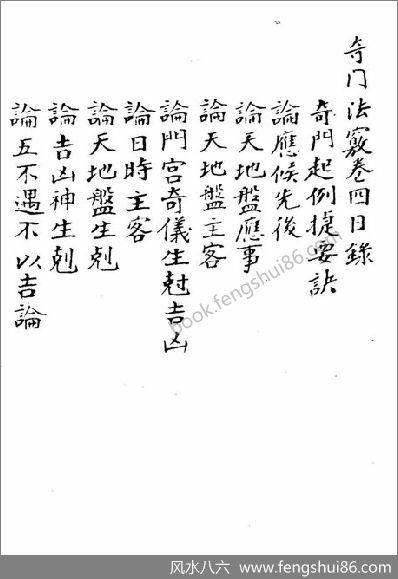 奇门法竅卷四目錄
奇門起例捷要訣
論應候先後
論天地盤應事
論天地盤主客
論門宮奇儀生尅吉凶
論日時主客
論天地盤生剋
論吉凶神生剋
論五不遇不以吉論
book.fengshui86.com
风水八六 - www.fengshui86.com